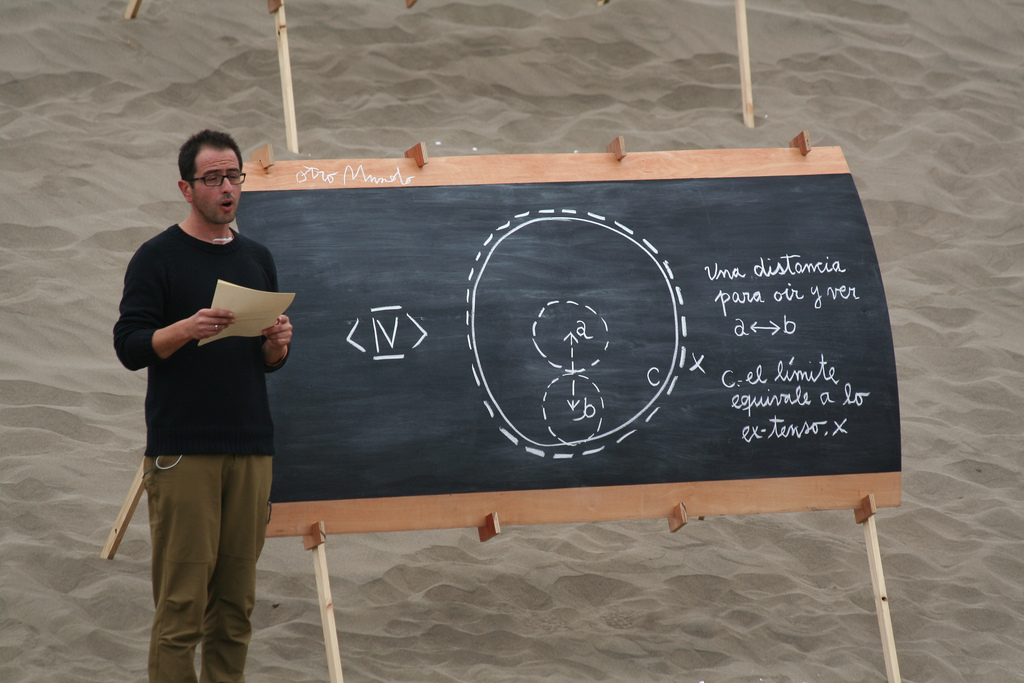 otro Mundo
<IV>
a
b
c
x
Una distancia
para oír y ver
a↔b
c. el límite
equivale a lo
ex-tenso, x